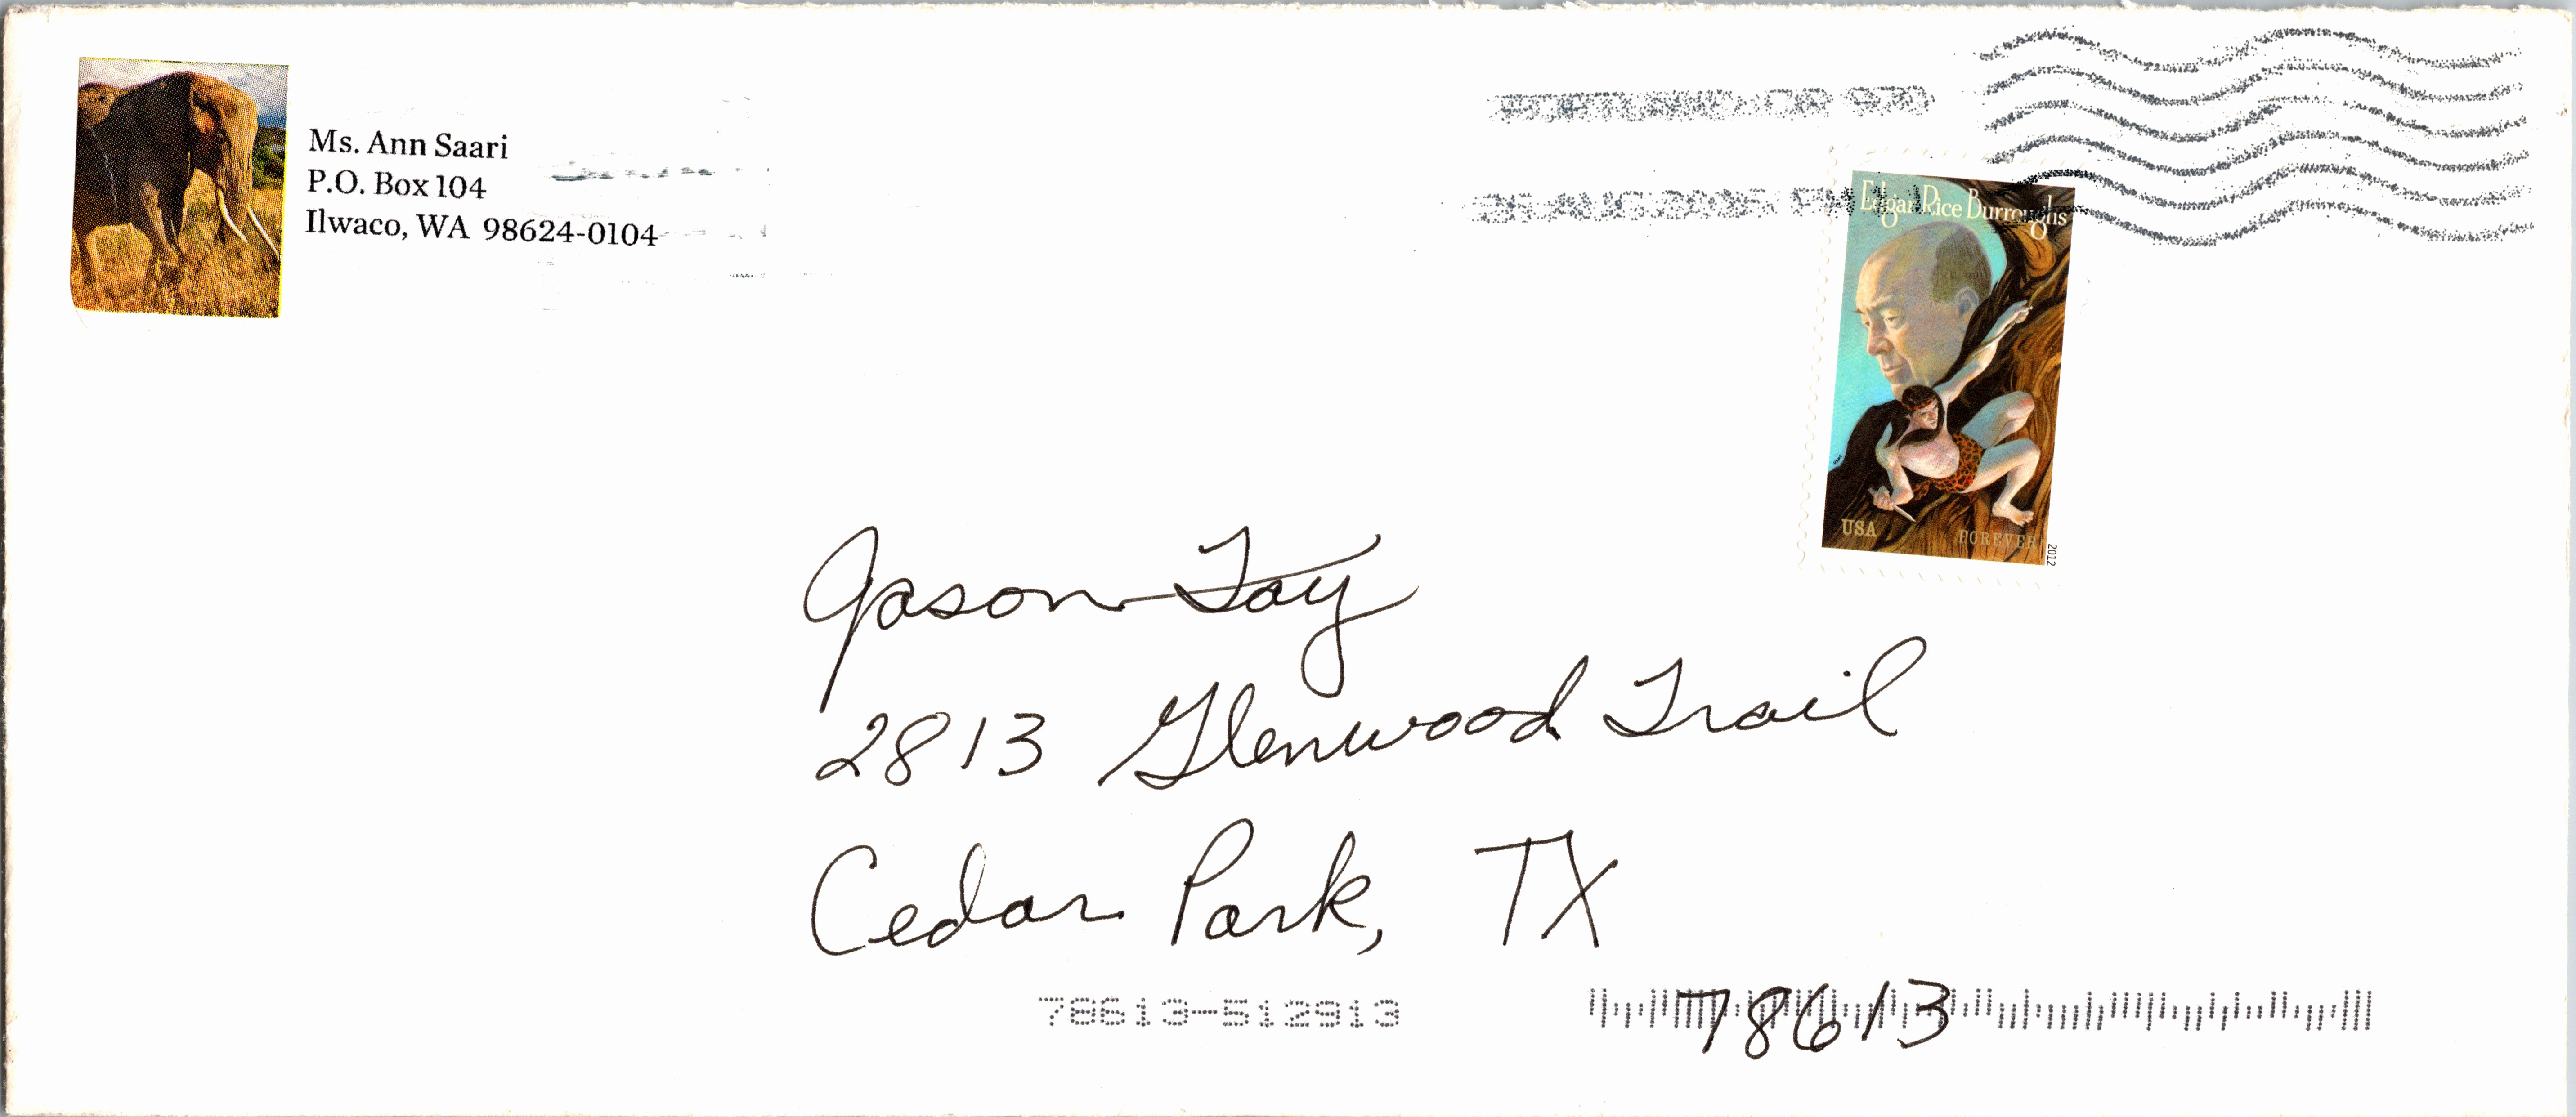 Ms. Ann Saari
P.O. Box 104
Ilwaco, WA 98624-0104
PORTLAND OR 970
21 AUG 2025 PM
Edgar Rice Burroughs
USA
FOREVER
2012
Jason Fay
2813 Glenwood Trail
Cedar Park, TX
78613-512913
78613